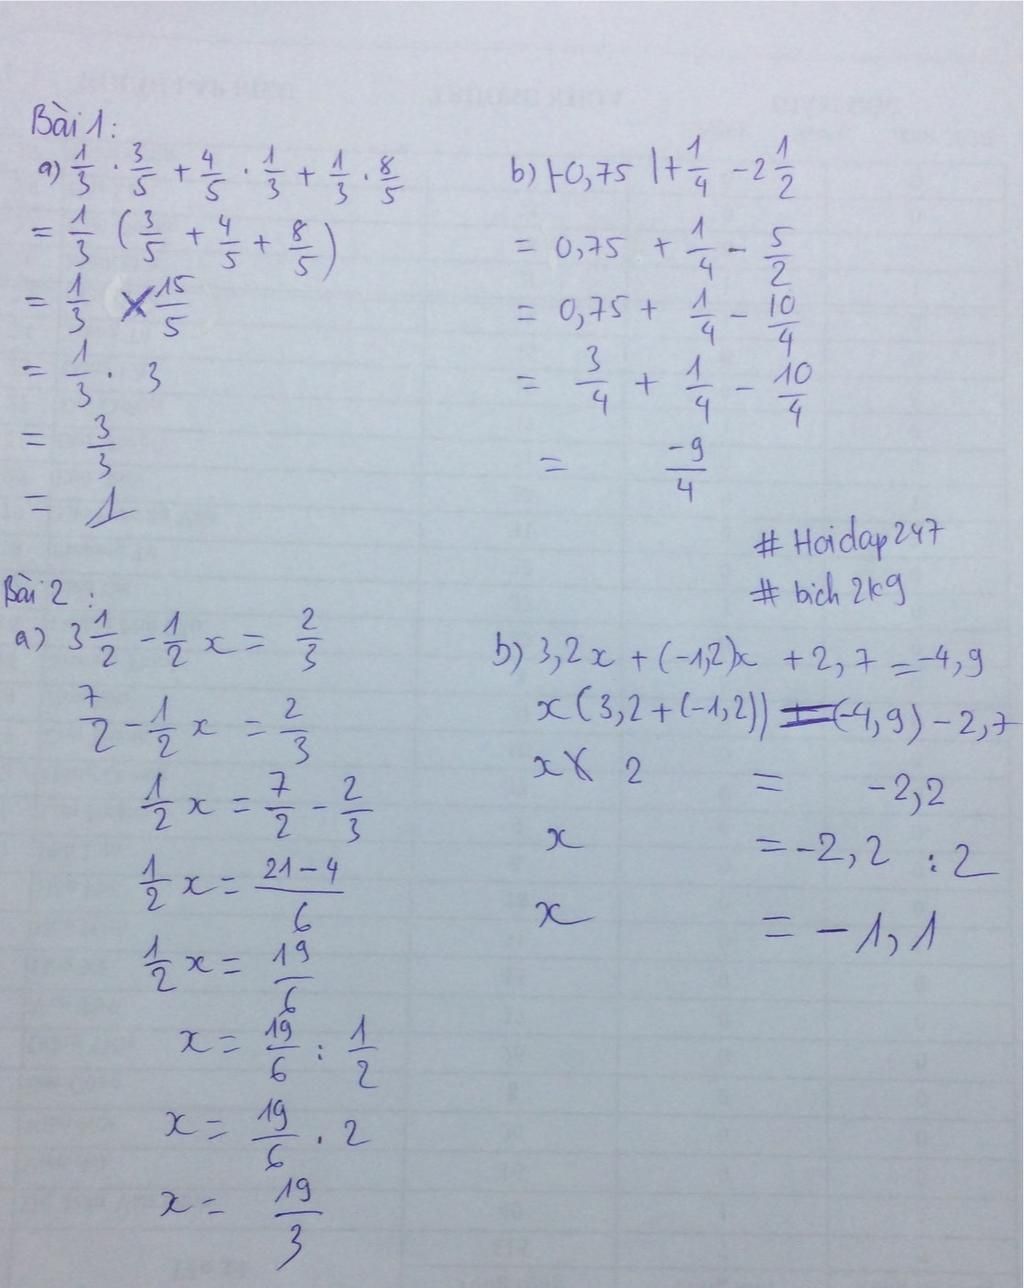 Bài 1:
a) 1/3 . 3/5 + 4/5 . 1/3 + 1/3 . 8/5
= 1/3 (3/5 + 4/5 + 8/5)
= 1/3 × 15/5
= 1/3 . 3
= 3/3
= 1
b) |-0,75| + 1/4 - 2 1/2
= 0,75 + 1/4 - 5/2
= 0,75 + 1/4 - 10/4
= 3/4 + 1/4 - 10/4
= -9/4
# Hoidap247
# bich2k9
Bài 2:
a) 3 1/2 - 1/2 x = 2/3
7/2 - 1/2 x = 2/3
1/2 x = 7/2 - 2/3
1/2 x = 21-4/6
1/2 x = 19/6
x = 19/6 : 1/2
x = 19/6 . 2
x = 19/3
b) 3,2x + (-1,2)x + 2,7 = -4,9
x(3,2 + (-1,2)) = (-4,9) - 2,7
x × 2 = -2,2
x = -2,2 : 2
x = -1,1